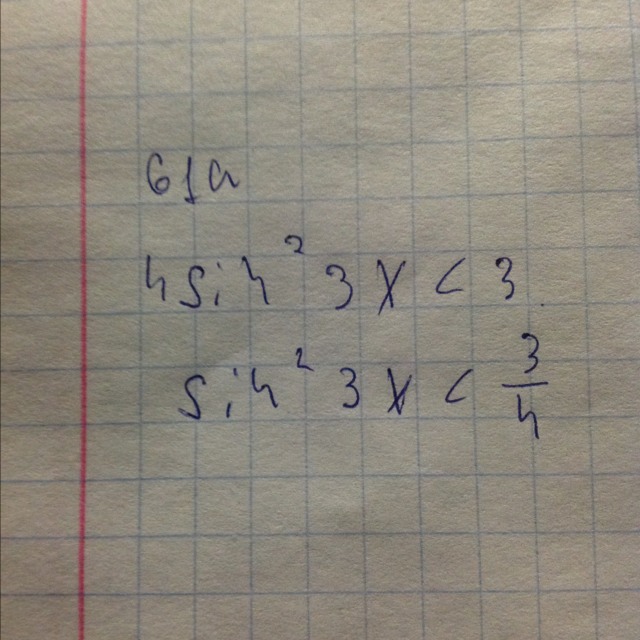 61a
4 sin² 3x < 3
sin² 3x < 3/4